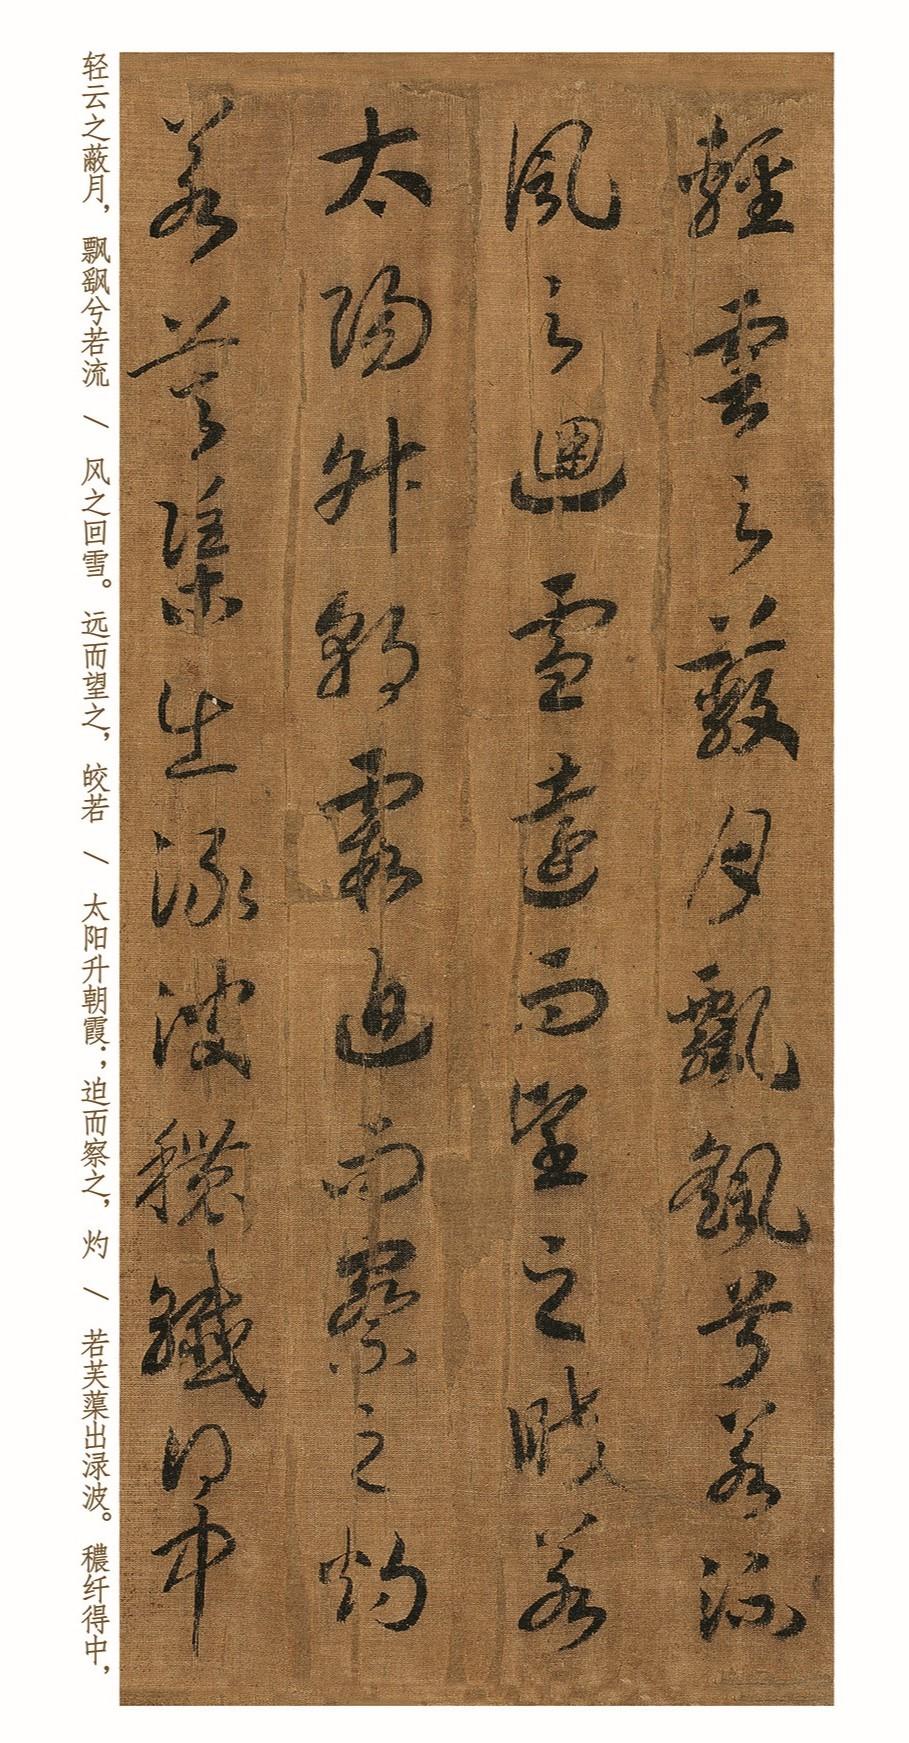 輕雲之蔽月飄飖兮若流
風之迴雪遠而望之皎若
太陽升朝霞迫而察之灼
若芙蕖出淥波穠纖得中
轻云之蔽月，飘飖兮若流 / 风之回雪。远而望之，皎若 / 太阳升朝霞；迫而察之，灼 / 若芙蕖出渌波。穠纤得中，